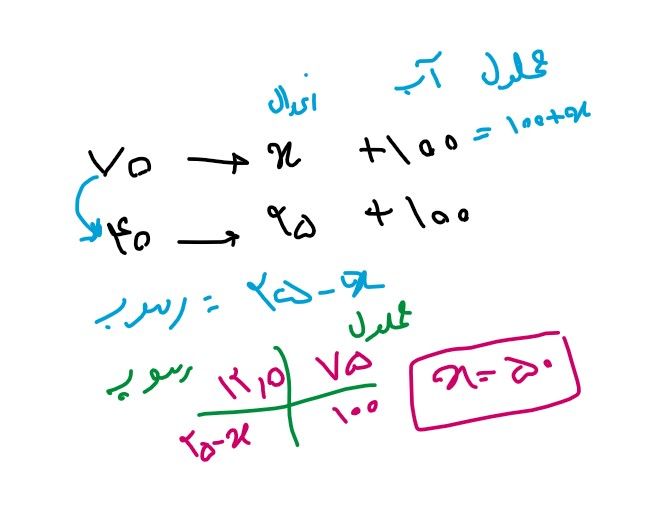 انحلال آب محلول
۷۵ → x + ۱۰۰ = ۱۰۰+x
۴۰ → ۲۵ + ۱۰۰
رسوب = ۲۵-x
محلول
رسوب ۱۲,۵ | ۷۵
۲۵-x | ۱۰۰
x = ۵۰